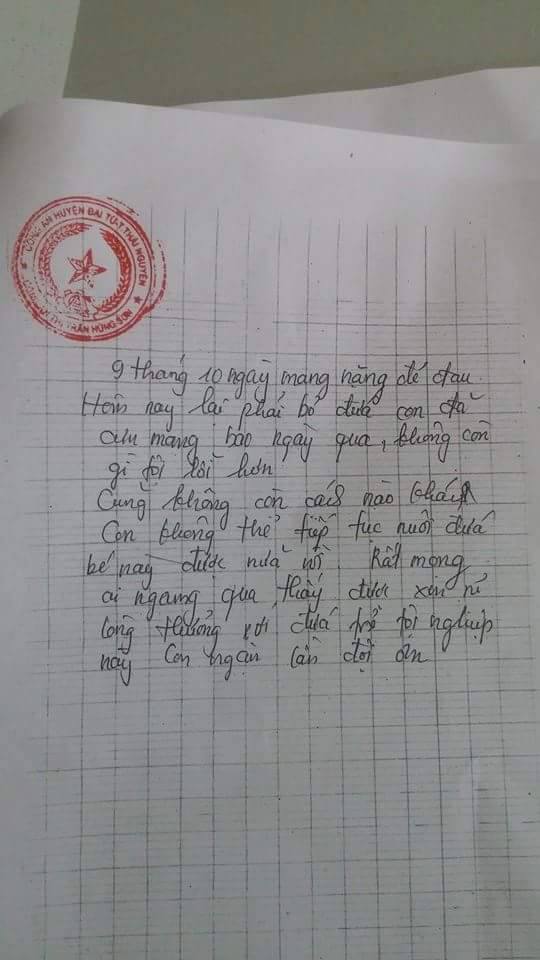 CÔNG AN HUYỆN ĐẠI TỪ-T.THÁI NGUYÊN
THỊ TRẤN HÙNG SƠN
9 tháng 10 ngày mang nặng đẻ đau.
Hôm nay lại phải bỏ đứa con đã
ấm mang bao ngày qua, không còn
gì tội lỗi hơn
Cũng không còn cách nào khác
Con không thể tiếp tục nuôi đứa
bé này được nữa rồi. Rất mong
ai ngang qua, thấy được xin rủ
lòng thương với đứa trẻ tội nghiệp
này Con ngàn lần đội ơn